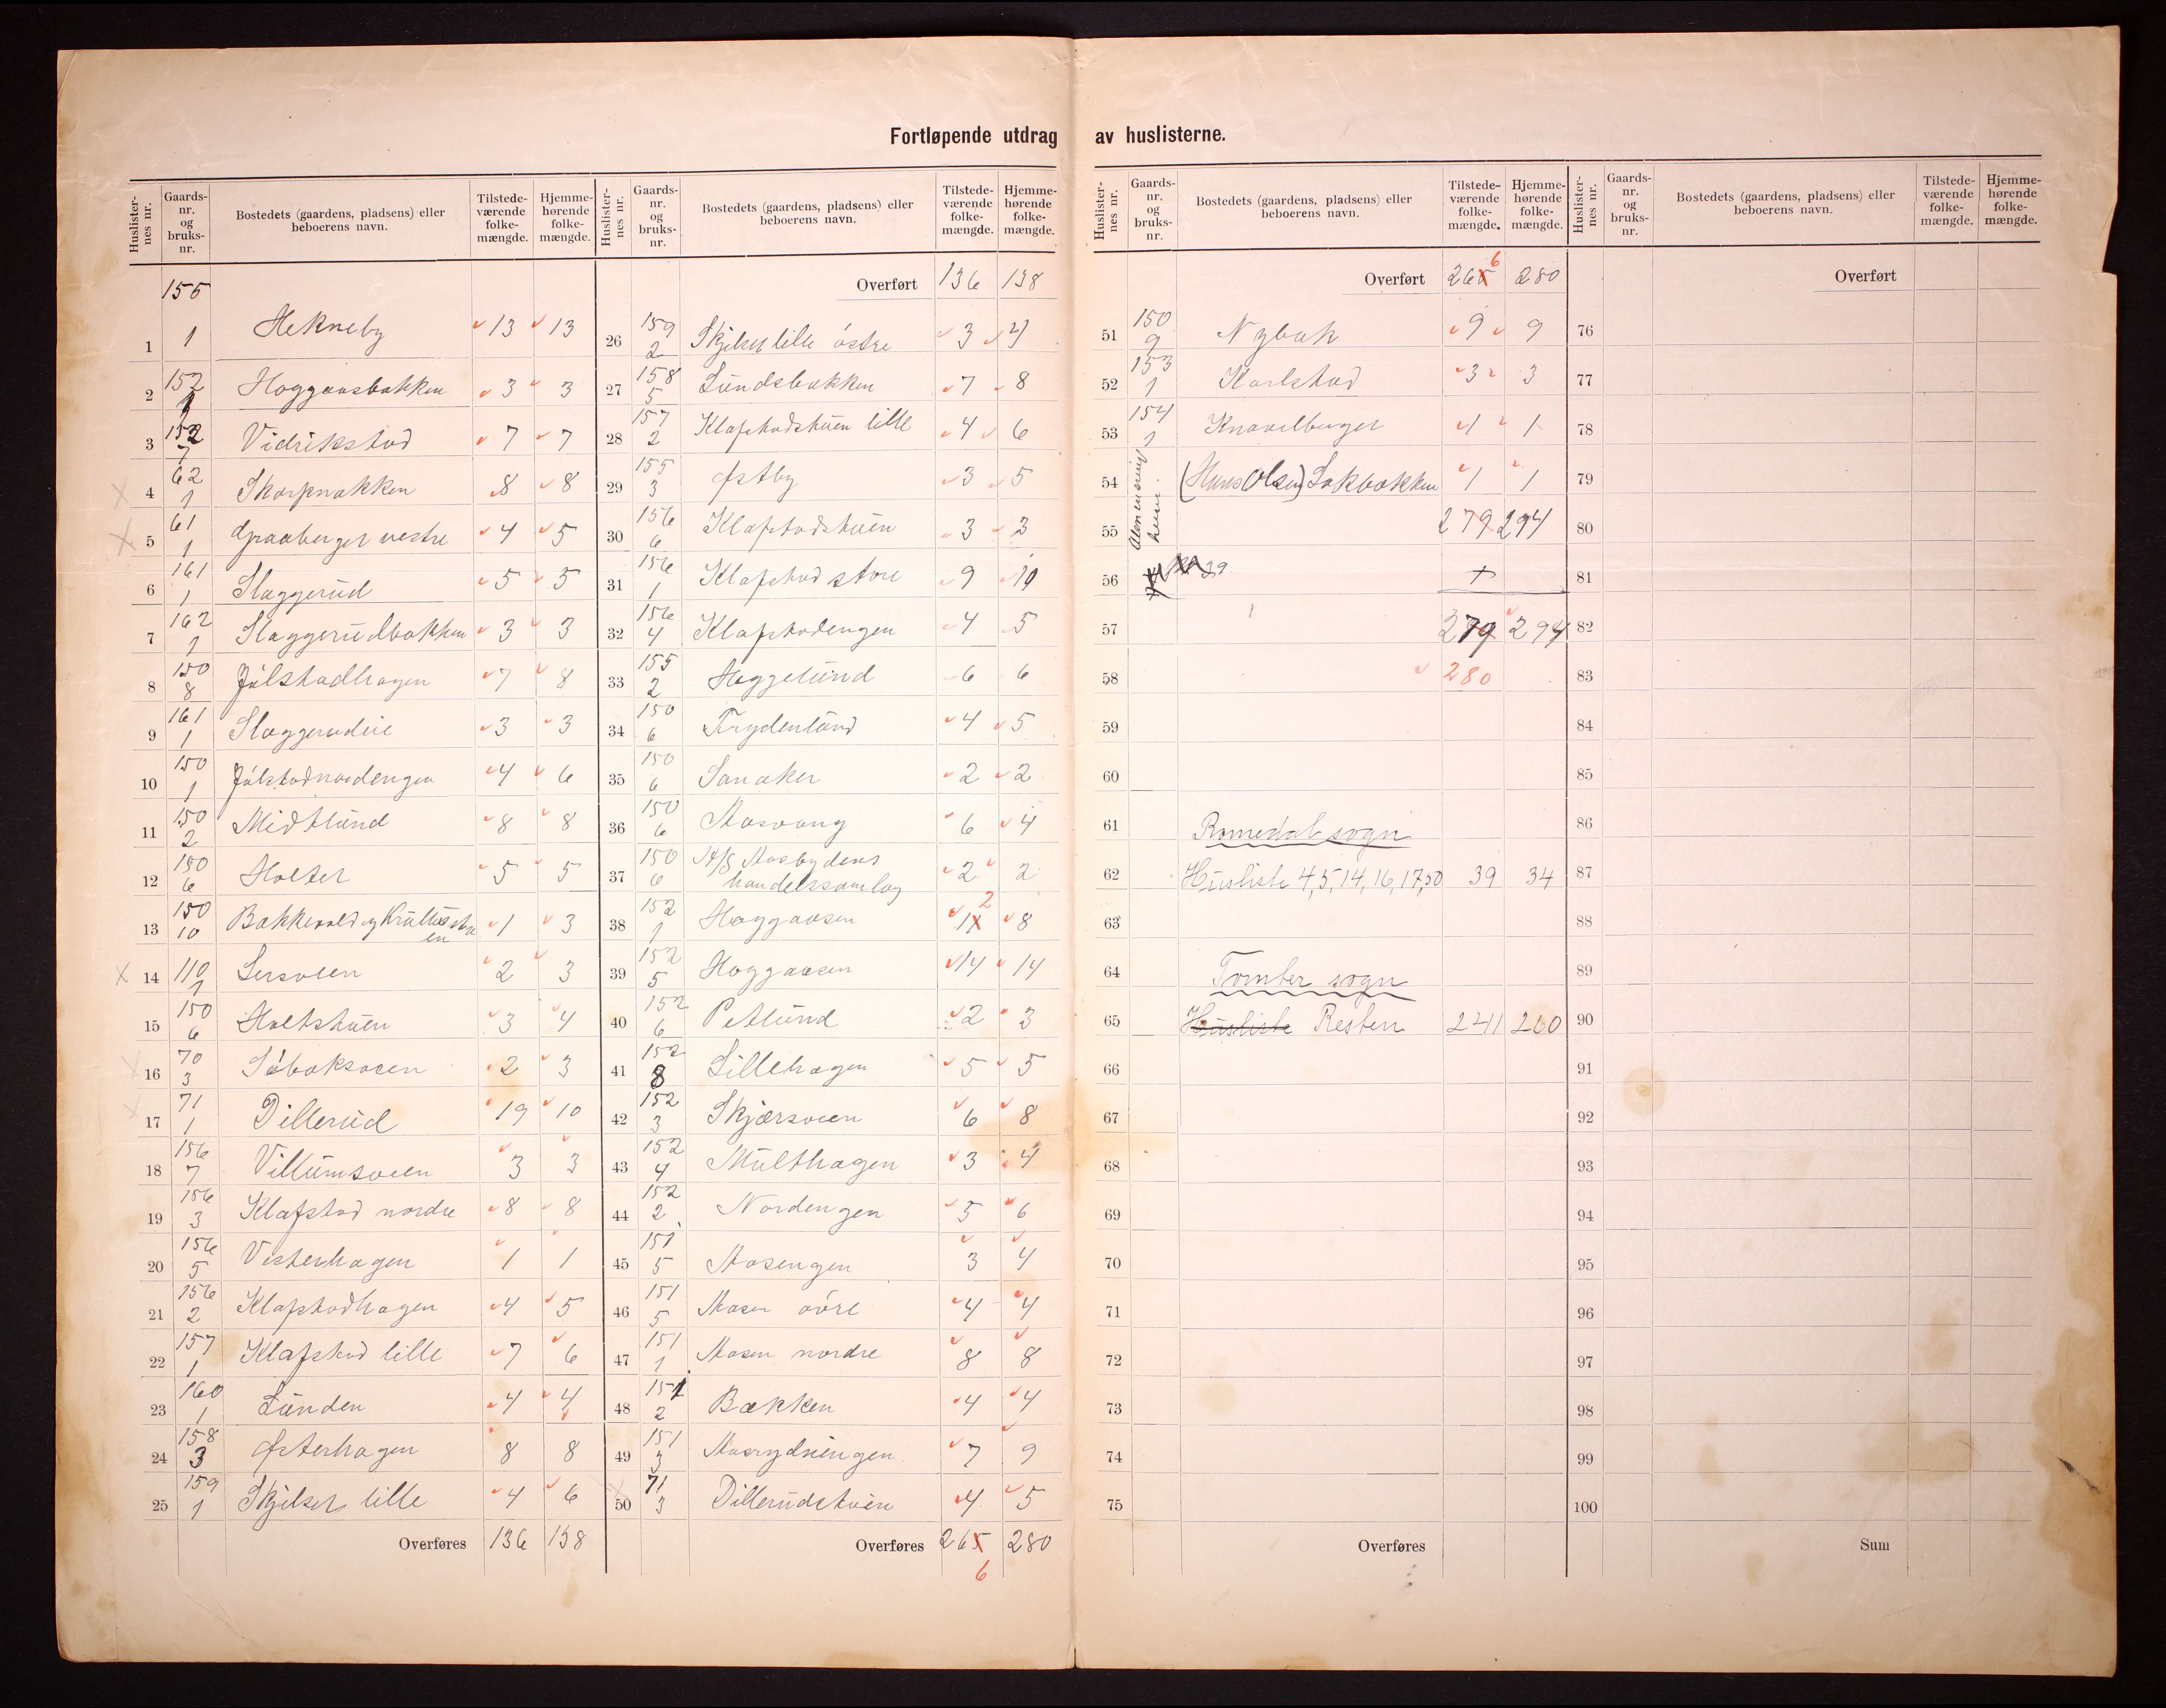 Fortløpende utdrag av huslisterne.
Huslister-nes nr. Gaards-nr. og bruks-nr. Bostedets (gaardens, pladsens) eller beboerens navn. Tilstede-værende folke-mængde. Hjemme-hørende folke-mængde.
1 155 1 Hekneby 13 13
2 152 Hoggaasbakken 3 3
3 152 7 Vidrikstad 7 7
4 62 1 Skarpnakken 8 8
5 61 1 Graaberget vestre 4 5
6 161 1 Slaggerud 5 5
7 162 1 Slaggerudbakken 3 3
8 150 8 Jølstadhagen 7 8
9 161 1 Slaggerudeie 3 3
10 150 1 Jølstadnordengen 4 6
11 150 2 Midtlund 8 8
12 150 6 Holter 5 5
13 150 10 Bakkevold og 1 3
14 110 1 Sersveen 2 3
15 150 6 Holtstuen 3 4
16 70 3 Søbaksveen 2 3
17 71 1 Dillerud 19 10
18 156 7 Villumsveen 3 3
19 156 3 Klafstad nordre 8 8
20 156 5 Vesterhagen 1 1
21 156 2 Klafstadhagen 4 5
22 157 1 Klafstad lille 7 6
23 160 1 Lunden 4 4
24 158 3 Østerhagen 8 8
25 159 1 Skjelset lille 4 6
Overføres 136 138
Huslister-nes nr. Gaards-nr. og bruks-nr. Bostedets (gaardens, pladsens) eller beboerens navn. Tilstede-værende folke-mængde. Hjemme-hørende folke-mængde.
Overført 136 138
26 159 2 Skjelset lille östre 3 4
27 158 5 Lundsbakken 7 8
28 157 2 Klafstadstuen lille 4 6
29 155 3 Østby 3 5
30 156 6 Klafstadstuen 3 3
31 156 1 Klafstad store 9 10
32 156 4 Klafstadengen 4 5
33 155 2 Heggelund 6 6
34 150 6 Frydenlund 4 5
35 150 6 Sanaker 2 2
36 150 6 Aasvang 6 4
37 150 6 A/S Aasbygdens handelssamlag 2 2
38 152 1 Hoggaasen 1 2 8
39 152 5 Hoggaasen 14 14
40 152 6 Petlund 2 3
41 152 8 Lillehagen 5 5
42 152 3 Skjærsveen 6 8
43 152 4 Multhagen 3 4
44 152 2 Nordengen 5 6
45 151 5 Aasengen 3 4
46 151 5 Aasen øvre 4 4
47 151 1 Aasen nordre 8 8
48 151 2 Bækken 4 4
49 151 3 Aasrydningen 7 9
50 71 3 Dillerudstuen 4 5
Overføres 265 6 280
Huslister-nes nr. Gaards-nr. og bruks-nr. Bostedets (gaardens, pladsens) eller beboerens navn. Tilstede-værende folke-mængde. Hjemme-hørende folke-mængde.
Overført 265 6 280
51 150 9 Nybak 9 9
52 153 1 Karlstad 3 3
53 154 1 Knavelberget 1 1
54 (Hans Olsen) Lakbakken 1 1
55 279 294
56 +
57 279 294
58 280
59
60
61 Romedal sogn
62 Husliste 4, 5, 14, 16, 17, 50 39 34
63
64 Tomter sogn
65 Husliste Resten 241 260
66
67
68
69
70
71
72
73
74
75
Overføres
Huslister-nes nr. Gaards-nr. og bruks-nr. Bostedets (gaardens, pladsens) eller beboerens navn. Tilstede-værende folke-mængde. Hjemme-hørende folke-mængde.
Overført
76
77
78
79
80
81
82
83
84
85
86
87
88
89
90
91
92
93
94
95
96
97
98
99
100
Sum